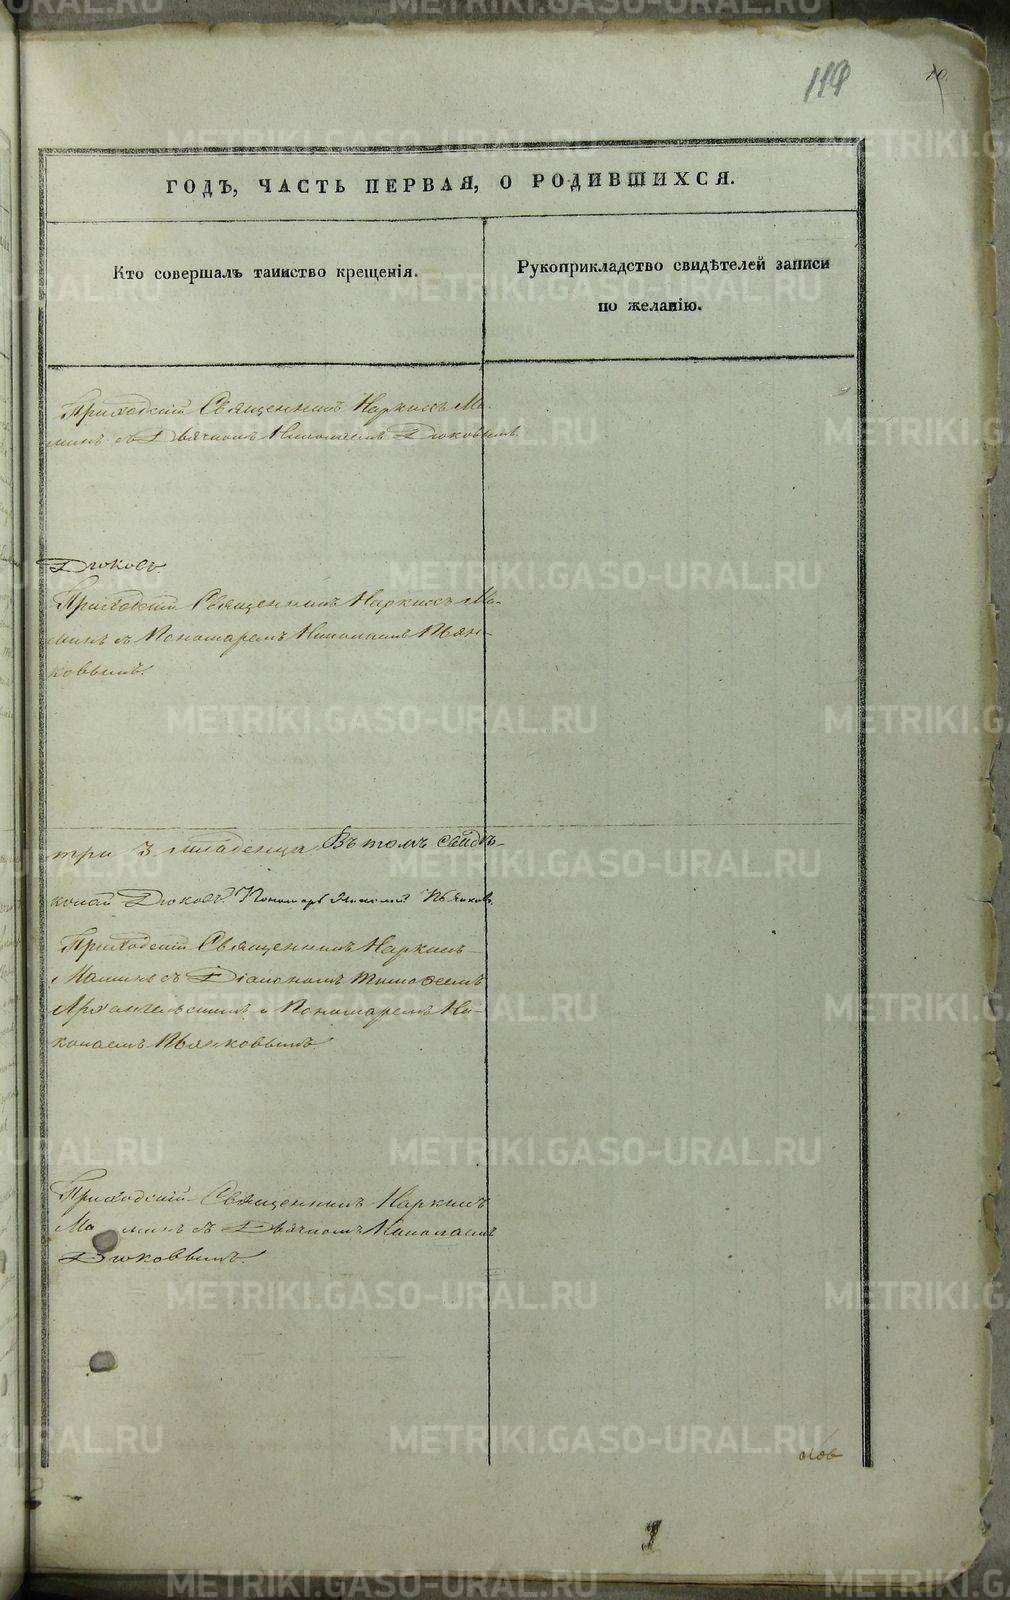 119
10
ГОДЪ, ЧАСТЬ ПЕРВАЯ, О РОДИВШИХСЯ.
Кто совершалъ таинство крещенія.
Рукоприкладство свидѣтелей записи
по желанію.
Приходскій Священникъ Наркисъ Ма-
минъ съ Дьячкомъ Николаемъ Дюковымъ
Дюковъ.
Приходскій Священникъ Наркисъ Ма-
минъ съ Пономаремъ Николаемъ Пьян-
ковымъ.
три 3 младенца. Въ томъ свидѣ-
колай Дюковъ. Пономарь Николай Пьянковъ.
Приходскій Священникъ Наркисъ
Маминъ съ Діакономъ Тимофеемъ
Архангельскимъ и Пономаремъ Ни-
колаемъ Пьянковымъ.
Приходскій Священникъ Наркисъ
Маминъ съ Дьячкомъ Николаемъ
Дюковымъ.
METRIKI.GASO-URAL.RU